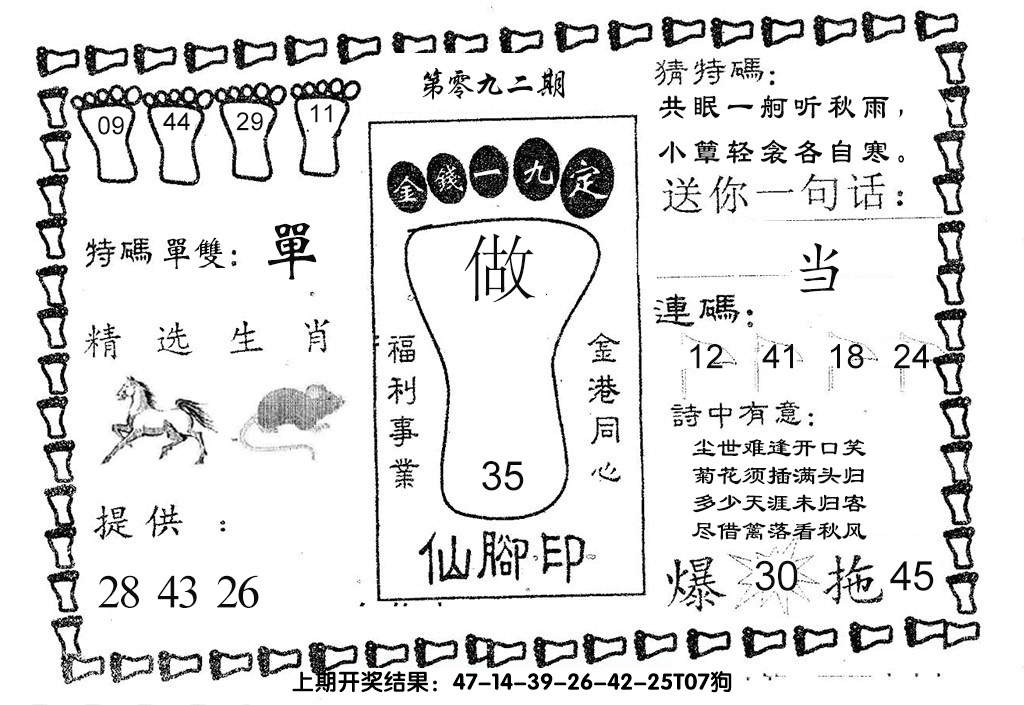 第零九二期
09 44 29 11
特碼單雙：單
精选生肖
提供：
28 43 26
金錢一九定
做
福利事業
金港同心
35
仙腳印
猜特碼：
共眠一舸听秋雨，
小蕈轻衾各自寒。
送你一句话：
当
連碼：
12 41 18 24
詩中有意：
尘世难逢开口笑
菊花须插满头归
多少天涯未归客
尽借篱落看秋风
爆 30 拖 45
上期开奖结果：47-14-39-26-42-25T07狗